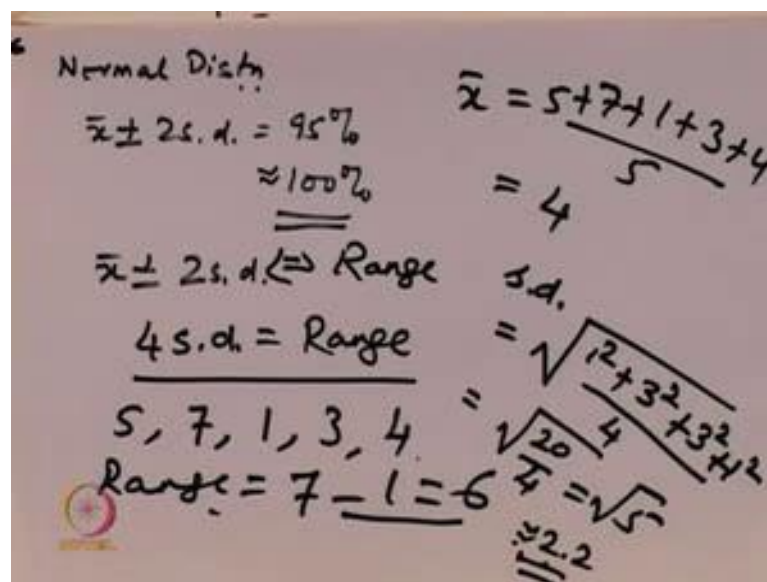 Normal Distn
x̄ ± 2s.d. = 95%
≈100%
x̄ ± 2s.d. ⇔ Range
4 s.d. = Range
5, 7, 1, 3, 4
Range = 7 - 1 = 6
x̄ = 5+7+1+3+4
5
= 4
s.d.
= √1²+3²+3²+1²
4
= √20
4 = √5
≈2.2